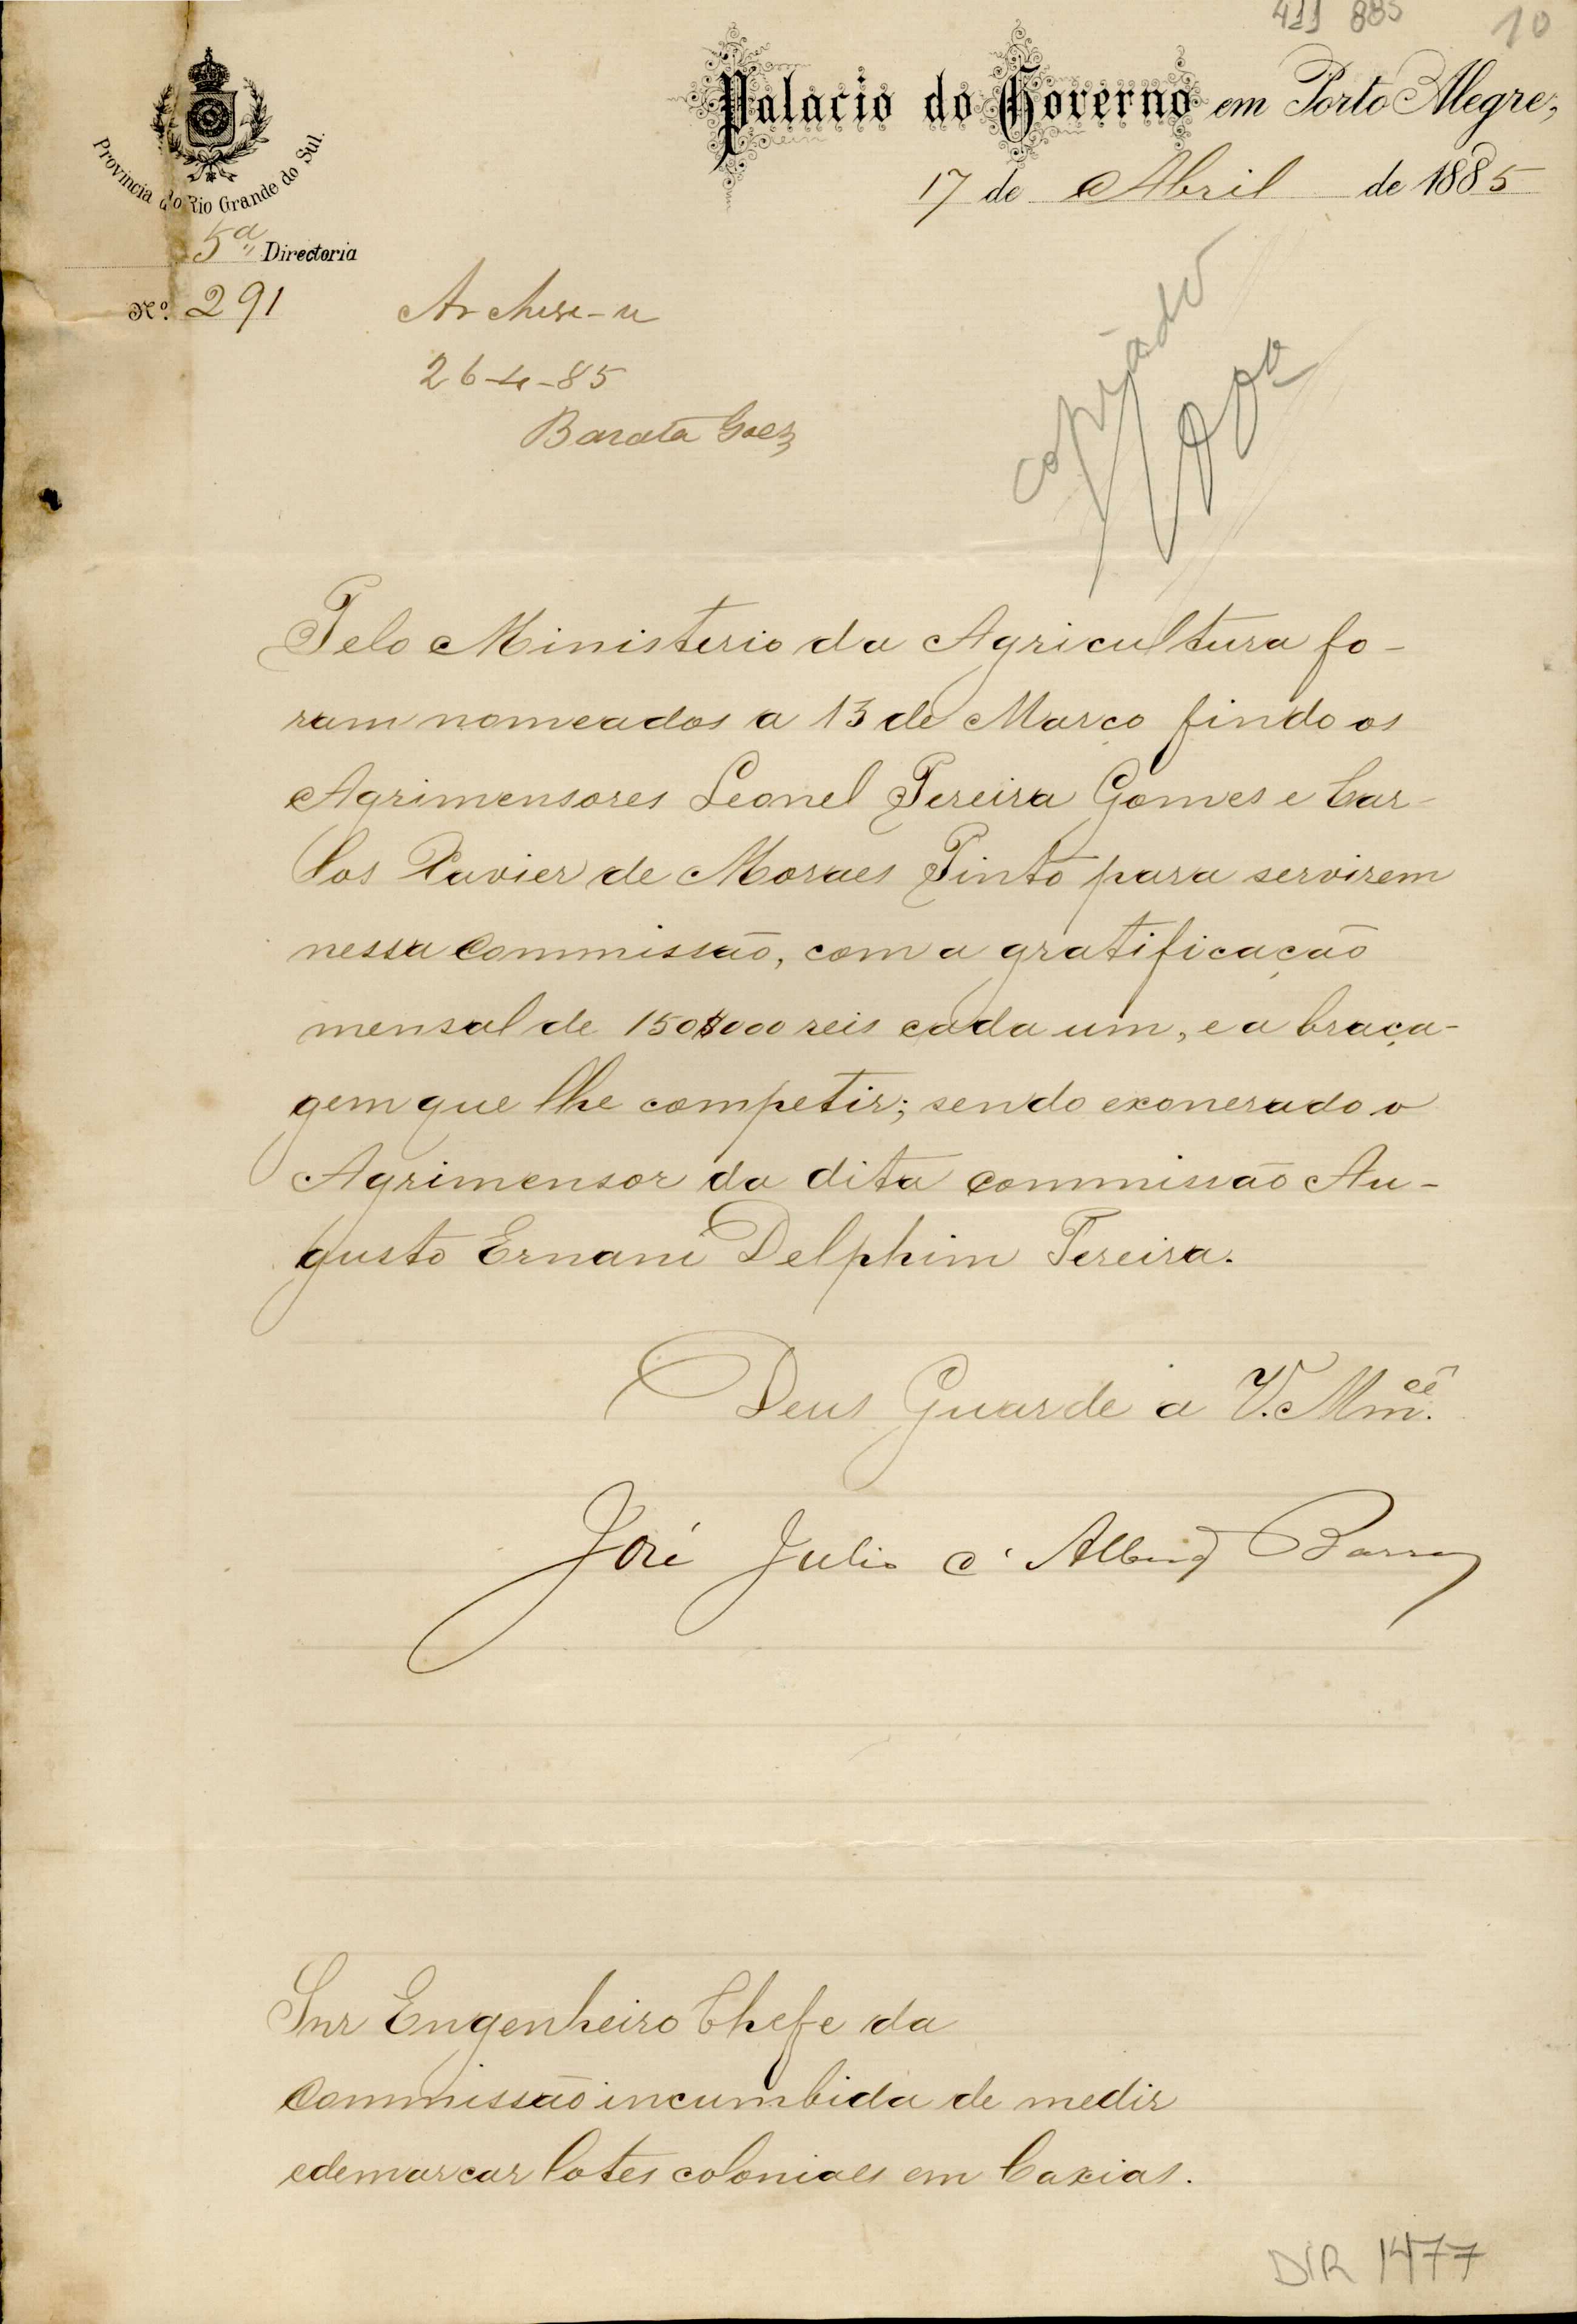 411 885 10
Palacio do Governo em Porto Alegre,
17 de Abril de 1885
Provincia do Rio Grande do Sul.
5ª Directoria
Nº. 291
Archive-se
26-4-85
Barata Goes
copiado
Pelo Ministerio da Agricultura fo-
ram nomeados a 13 de Março findo os
Agrimensores Leonel Pereira Gomes e Car-
los Xavier de Moraes Pinto para servirem
nessa Commissão, com a gratificação
mensal de 150$000 reis cada um, e a braça-
gem que lhe competir; sendo exonerado o
Agrimensor da dita commissão Au-
gusto Ernani Delphim Pereira.
Deus Guarde a V. Mm.ce
José Julio d'Albuq Barros
Snr Engenheiro Chefe da
Commissão incumbida de medir
e demarcar lotes coloniaes em Caxias.
DIR 1477